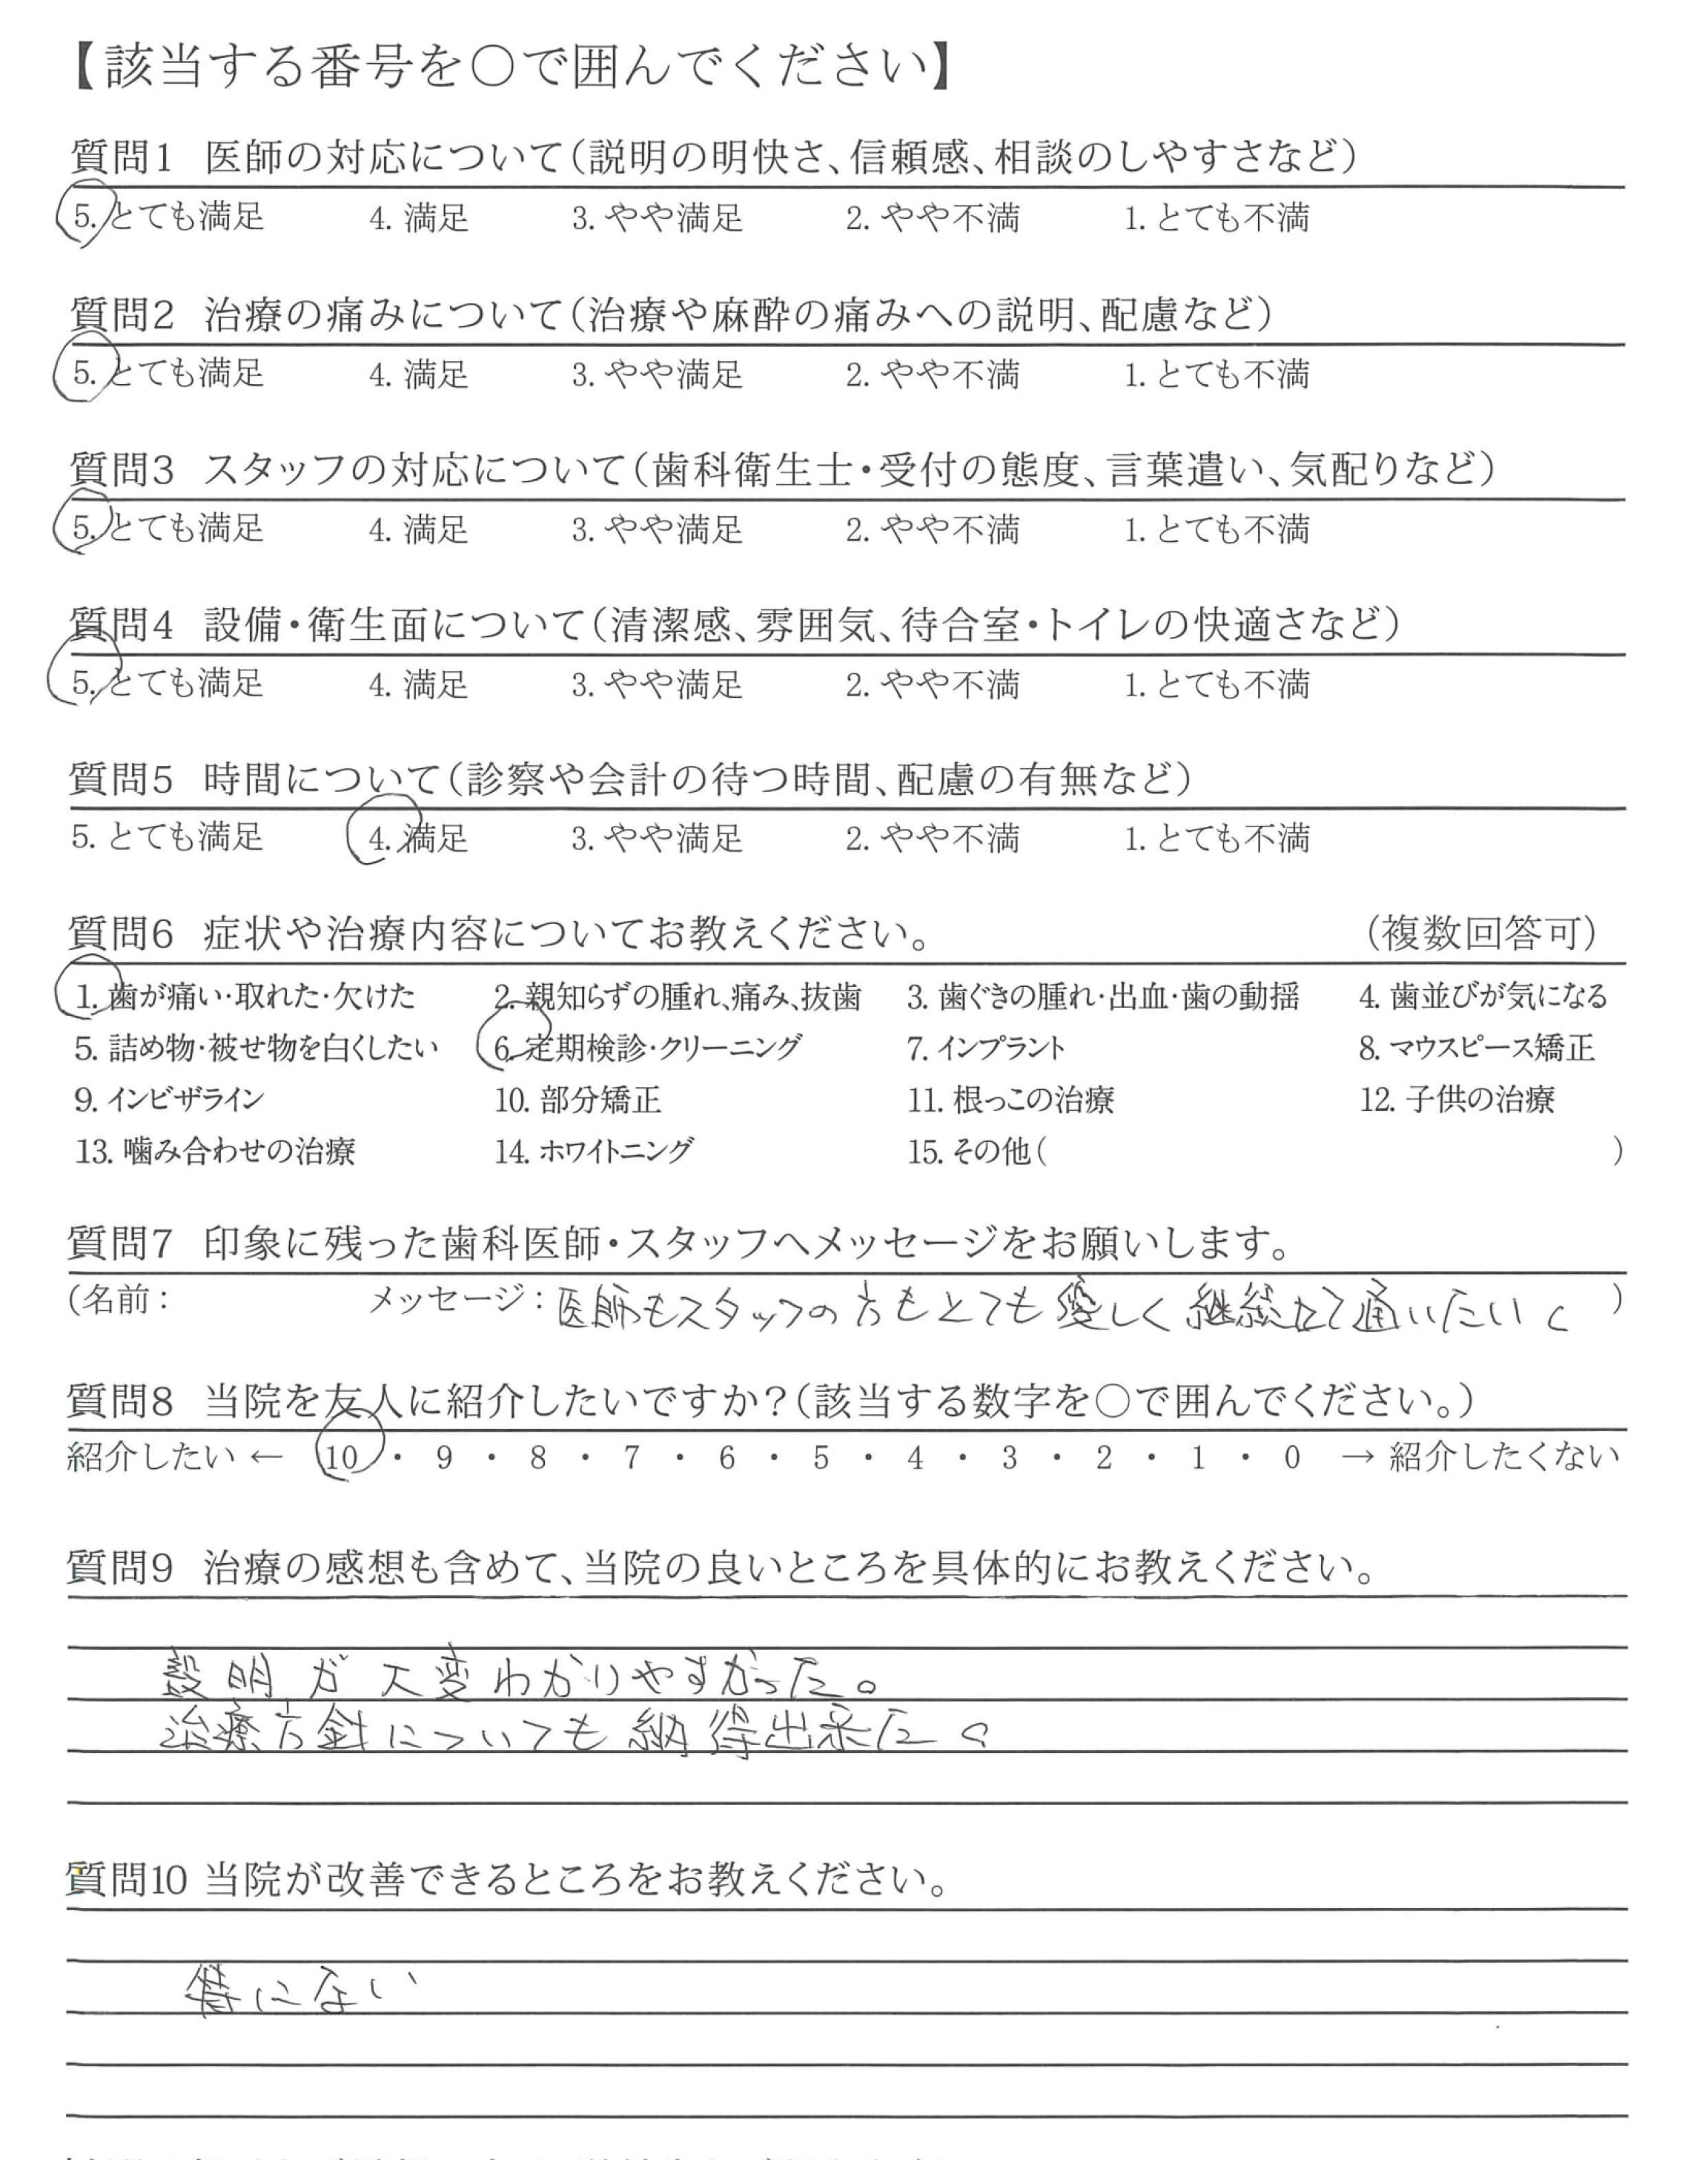 【該当する番号を○で囲んでください】
質問1 医師の対応について(説明の明快さ、信頼感、相談のしやすさなど)
5. とても満足 4. 満足 3. やや満足 2. やや不満 1. とても不満
質問2 治療の痛みについて(治療や麻酔の痛みへの説明、配慮など)
5. とても満足 4. 満足 3. やや満足 2. やや不満 1. とても不満
質問3 スタッフの対応について(歯科衛生士・受付の態度、言葉遣い、気配りなど)
5. とても満足 4. 満足 3. やや満足 2. やや不満 1. とても不満
質問4 設備・衛生面について(清潔感、雰囲気、待合室・トイレの快適さなど)
5. とても満足 4. 満足 3. やや満足 2. やや不満 1. とても不満
質問5 時間について(診察や会計の待つ時間、配慮の有無など)
5. とても満足 4. 満足 3. やや満足 2. やや不満 1. とても不満
質問6 症状や治療内容についてお教えください。 (複数回答可)
1. 歯が痛い・取れた・欠けた 2. 親知らずの腫れ、痛み、抜歯 3. 歯ぐきの腫れ・出血・歯の動揺 4. 歯並びが気になる
5. 詰め物・被せ物を白くしたい 6. 定期検診・クリーニング 7. インプラント 8. マウスピース矯正
9. インビザライン 10. 部分矯正 11. 根っこの治療 12. 子供の治療
13. 噛み合わせの治療 14. ホワイトニング 15. その他( )
質問7 印象に残った歯科医師・スタッフへメッセージをお願いします。
(名前: メッセージ: 医師もスタッフの方もとても優しく継続して通いたい。 )
質問8 当院を友人に紹介したいですか?(該当する数字を○で囲んでください。)
紹介したい ← 10 ・ 9 ・ 8 ・ 7 ・ 6 ・ 5 ・ 4 ・ 3 ・ 2 ・ 1 ・ 0 → 紹介したくない
質問9 治療の感想も含めて、当院の良いところを具体的にお教えください。
説明が大変わかりやすかった。
治療方針についても納得出来た。
質問10 当院が改善できるところをお教えください。
特にない